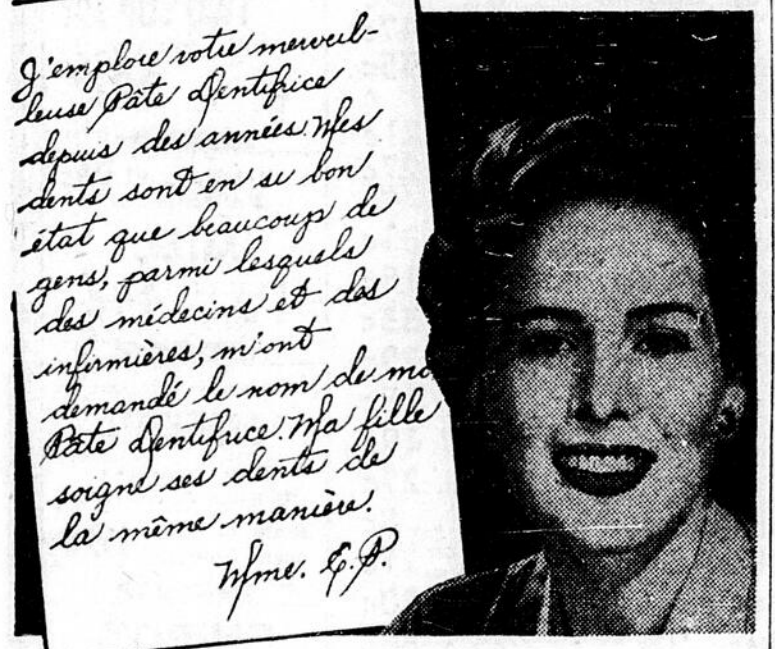 J'emploie votre merveil-
leuse Pâte Dentifrice
depuis des années. Mes
dents sont en si bon
état que beaucoup de
gens, parmi lesquels
des médecins et des
infirmières, m'ont
demandé le nom de ma
Pâte Dentifrice. Ma fille
soigne ses dents de
la même manière.
Mme. E.P.